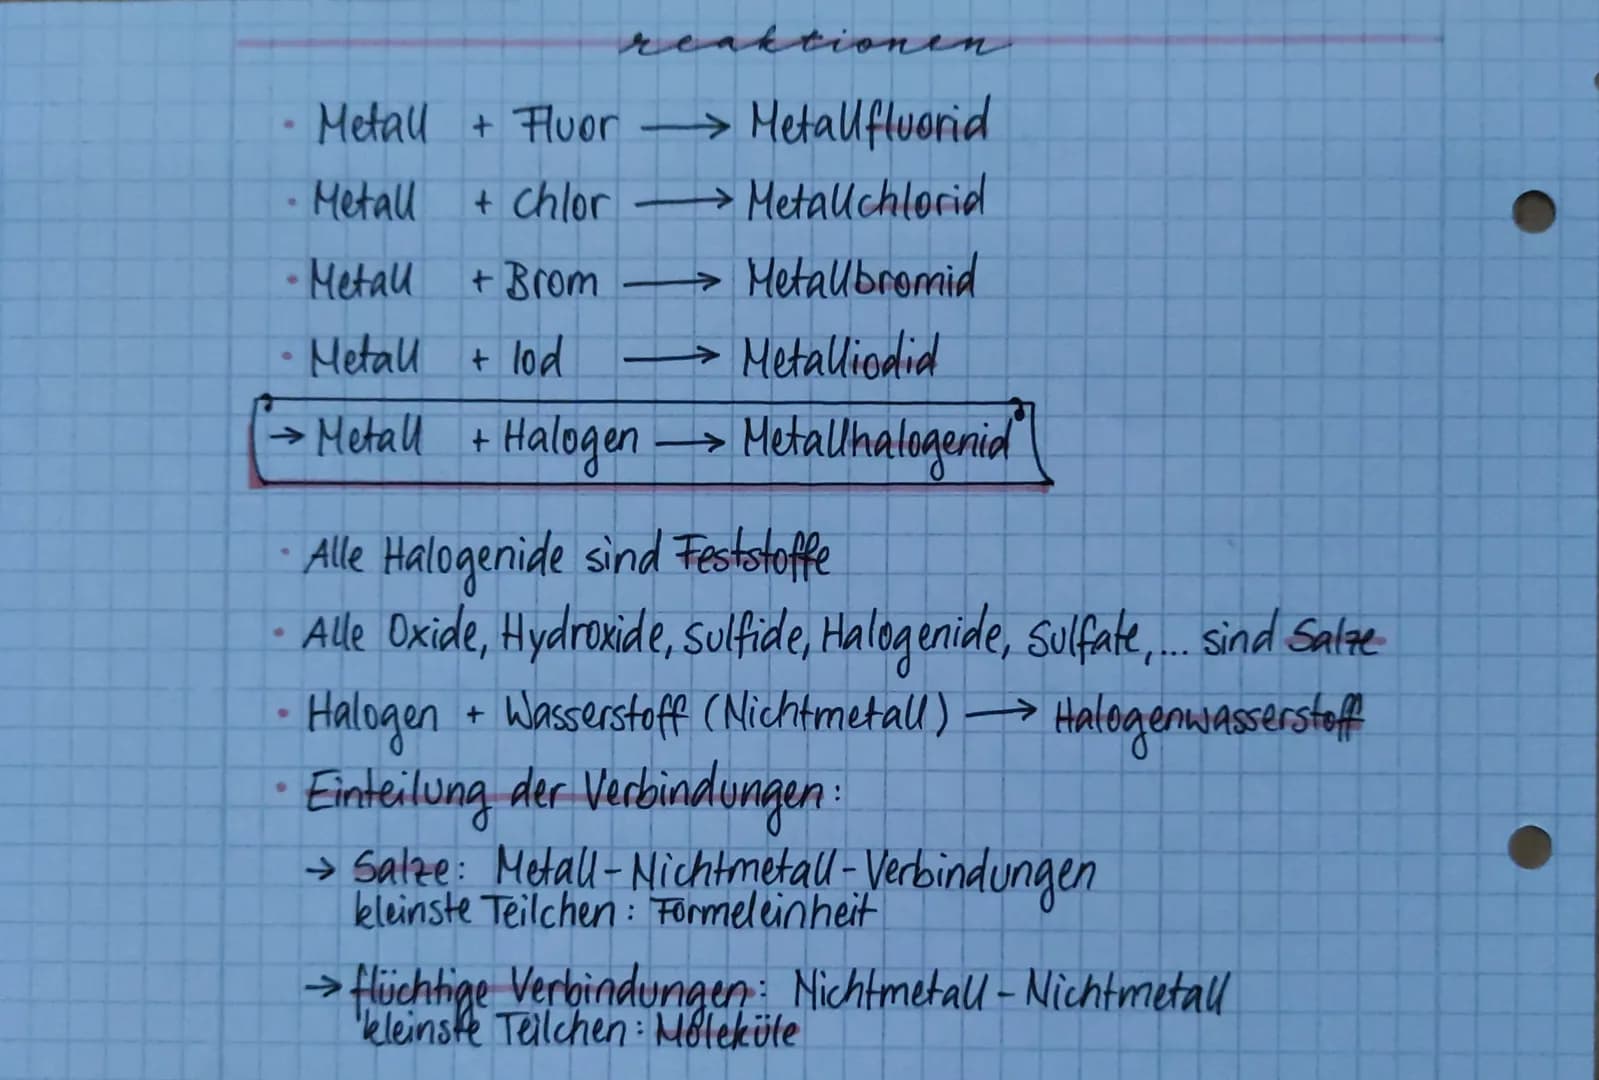 reaktionen
· Metall + Fluor → Metallfluorid
· Metall + Chlor → Metallchlorid
· Metall + Brom → Metallbromid
· Metall + Iod → Metalliodid
→ Metall + Halogen → Metallhalogenid
· Alle Halogenide sind Feststoffe
· Alle Oxide, Hydroxide, Sulfide, Halogenide, Sulfate,... sind Salze
· Halogen + Wasserstoff (Nichtmetall) → Halogenwasserstoff
· Einteilung der Verbindungen:
→ Salze: Metall-Nichtmetall-Verbindungen
kleinste Teilchen: Formeleinheit
→ flüchtige Verbindungen: Nichtmetall-Nichtmetall
kleinste Teilchen: Moleküle